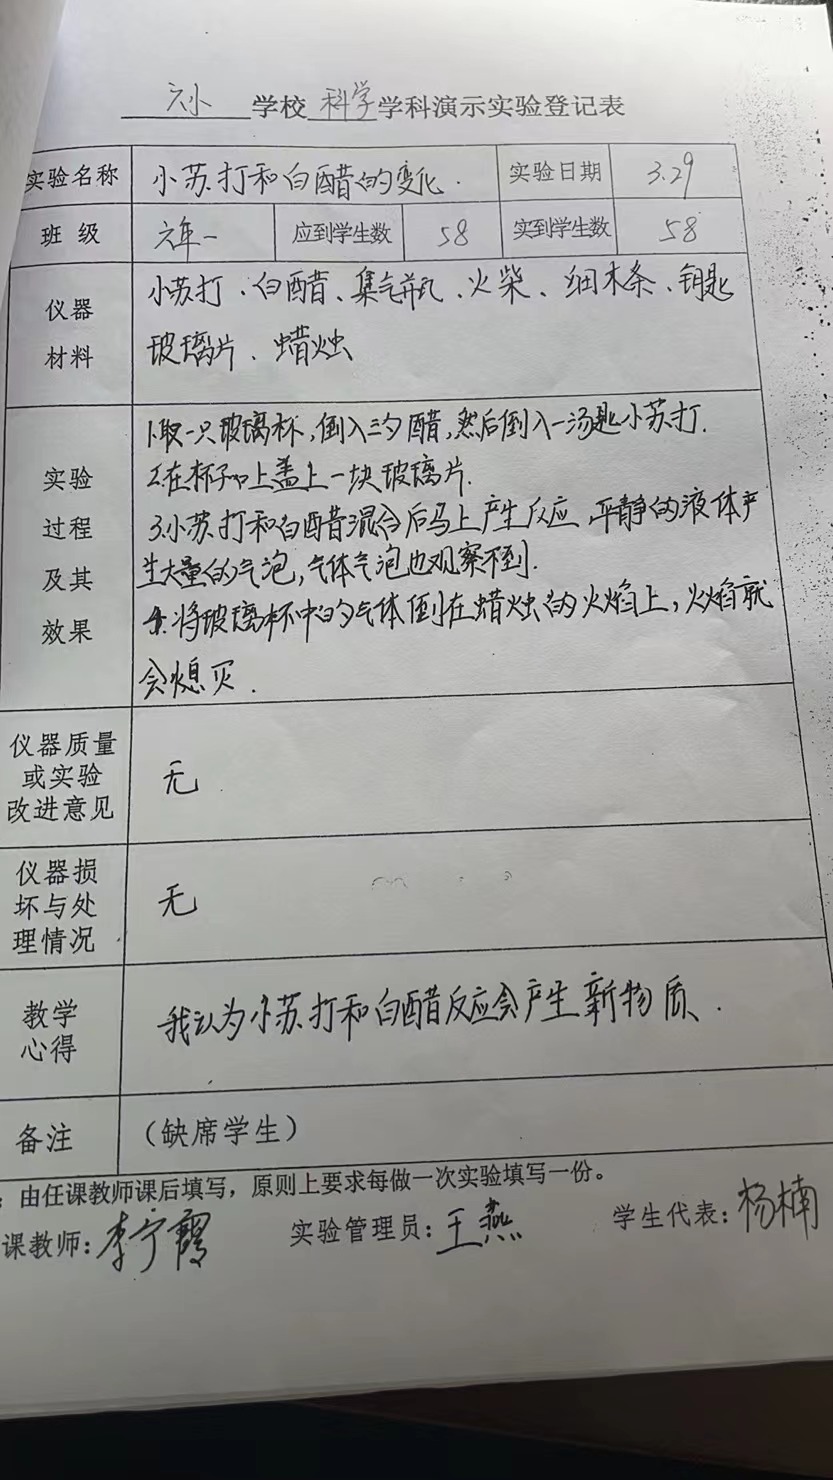 六小 学校 科学 学科演示实验登记表
实验名称 小苏打和白醋的变化. 实验日期 3.29
班 级 六年一 应到学生数 58 实到学生数 58
仪器
材料
小苏打、白醋、集气瓶、火柴、细木条、钥匙
玻璃片、蜡烛
实验
过程
及其
效果
1.取一只玻璃杯,倒入三勺醋,然后倒入一汤匙小苏打.
2.在杯子口上盖上一块玻璃片.
3.小苏打和白醋混合后马上产生反应,平静的液体产
生大量的气泡,气体气泡也观察不到.
4.将玻璃杯中的气体倒在蜡烛的火焰上,火焰就
会熄灭.
仪器质量
或实验
改进意见
无
仪器损
坏与处
理情况
无
教学
心得
我认为小苏打和白醋反应会产生新物质.
备注 (缺席学生)
:由任课教师课后填写,原则上要求每做一次实验填写一份。
课教师:李宁霞 实验管理员:王燕 学生代表:杨楠